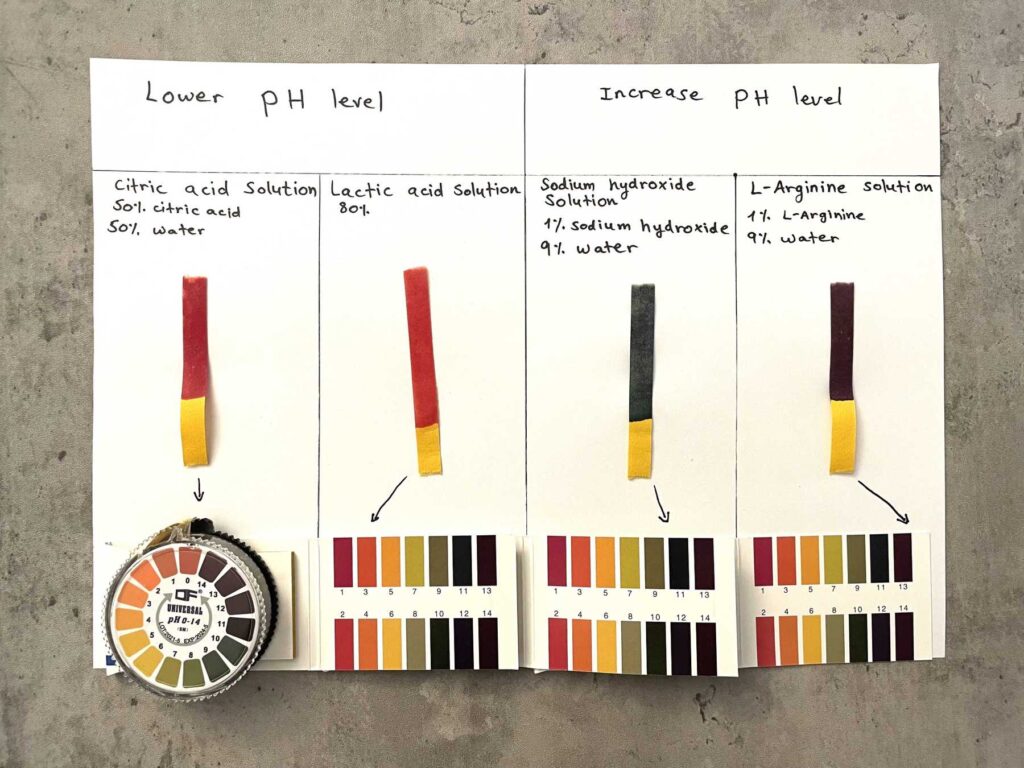 Lower pH level
Increase pH level
Citric acid Solution
50% citric acid
50% water
Lactic acid Solution
80%
Sodium hydroxide
Solution
1% sodium hydroxide
9% water
L-Arginine solution
1% L-Arginine
9% water
1 0 14
2 13
3 12
4 11
5 10
6 7 8 9
UNIVERSAL
pH 0-14
1 3 5 7 9 11 13
2 4 6 8 10 12 14
1 3 5 7 9 11 13
2 4 6 8 10 12 14
1 3 5 7 9 11 13
2 4 6 8 10 12 14